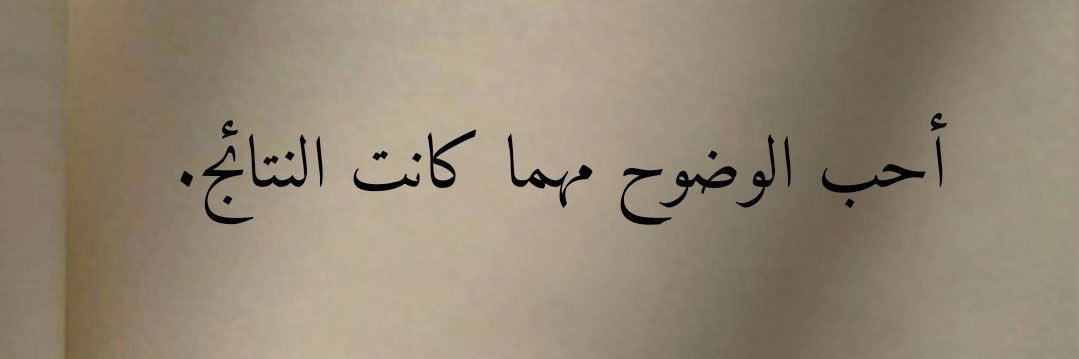 أحب الوضوح مهما كانت النتائج.